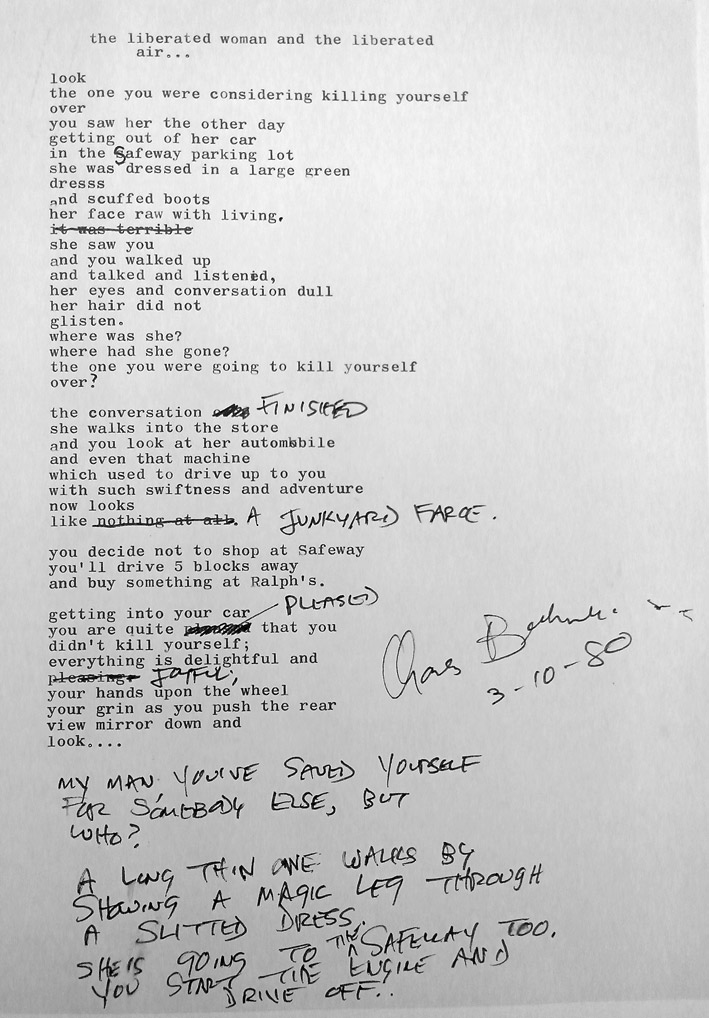 the liberated woman and the liberated
air...
look
the one you were considering killing yourself
over
you saw her the other day
getting out of her car
in the Safeway parking lot
she was dressed in a large green
dresss
and scuffed boots
her face raw with living.
it was terrible
she saw you
and you walked up
and talked and listened,
her eyes and conversation dull
her hair did not
glisten.
where was she?
where had she gone?
the one you were going to kill yourself
over?
the conversation FINISHED
she walks into the store
and you look at her automobile
and even that machine
which used to drive up to you
with such swiftness and adventure
now looks
like nothing at all. A JUNKYARD FARCE.
you decide not to shop at Safeway
you'll drive 5 blocks away
and buy something at Ralph's.
getting into your car
you are quite PLEASED that you
didn't kill yourself;
everything is delightful and
pleasing. JOYFUL,
your hands upon the wheel
your grin as you push the rear
view mirror down and
look....
Charles Bukowski
3-10-80
MY MAN, YOU'VE SAVED YOURSELF
FOR SOMEBODY ELSE, BUT
WHO?
A LONG THIN ONE WALKS BY
SHOWING A MAGIC LEG THROUGH
A SLITTED DRESS.
SHE IS GOING TO THE SAFEWAY TOO.
YOU START THE ENGINE AND
DRIVE OFF..